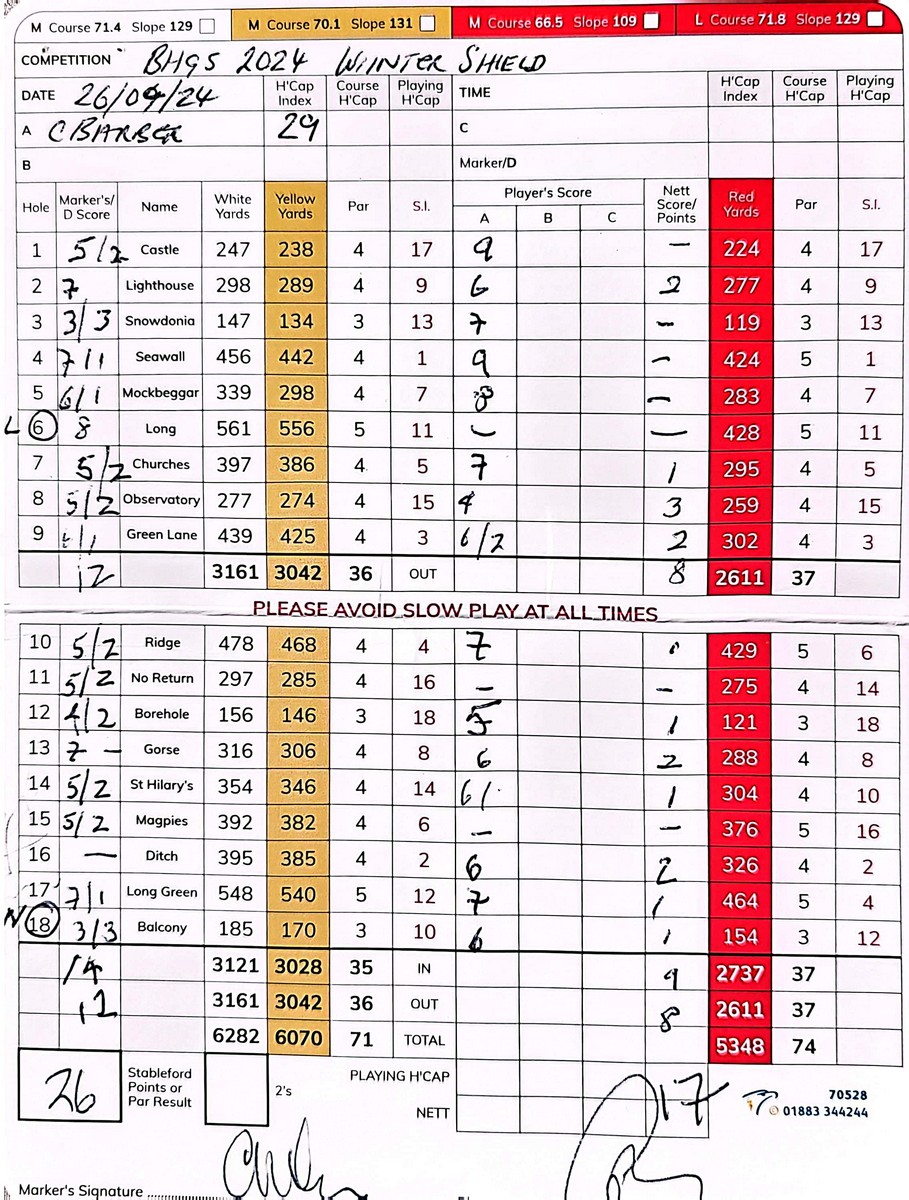 M Course 71.4 Slope 129 M Course 70.1 Slope 131 M Course 66.5 Slope 109 L Course 71.8 Slope 129
COMPETITION BHGS 2024 WIINTER SHIELD
DATE 26/09/24 H'Cap Index Course H'Cap Playing H'Cap TIME H'Cap Index Course H'Cap Playing H'Cap
A C BARBER 29 C
B Marker/D
Hole Marker's/ D Score Name White Yards Yellow Yards Par S.I. Player's Score A B C Nett Score/ Points Red Yards Par S.I.
1 5/2 Castle 247 238 4 17 9 – 224 4 17
2 7 Lighthouse 298 289 4 9 6 2 277 4 9
3 3/3 Snowdonia 147 134 3 13 7 – 119 3 13
4 7/1 Seawall 456 442 4 1 9 – 424 5 1
5 6/1 Mockbeggar 339 298 4 7 8 – 283 4 7
L 6 8 Long 561 556 5 11 – — 428 5 11
7 5/2 Churches 397 386 4 5 7 1 295 4 5
8 5/2 Observatory 277 274 4 15 4 3 259 4 15
9 Green Lane 439 425 4 3 6/2 2 302 4 3
12 3161 3042 36 OUT 8 2611 37
PLEASE AVOID SLOW PLAY AT ALL TIMES
10 5/2 Ridge 478 468 4 4 7 1 429 5 6
11 5/2 No Return 297 285 4 16 – – 275 4 14
12 4/2 Borehole 156 146 3 18 5 1 121 3 18
13 7 – Gorse 316 306 4 8 6 2 288 4 8
14 5/2 St Hilary's 354 346 4 14 6/ 1 304 4 10
15 5/2 Magpies 392 382 4 6 – – 376 5 16
16 — Ditch 395 385 4 2 6 2 326 4 2
17 7/1 Long Green 548 540 5 12 7 1 464 5 4
N 18 3/3 Balcony 185 170 3 10 6 1 154 3 12
14 3121 3028 35 IN 9 2737 37
12 3161 3042 36 OUT 8 2611 37
6282 6070 71 TOTAL 5348 74
26 Stableford Points or Par Result 2's PLAYING H'CAP 17
NETT
70528
01883 344244
Marker's Signature